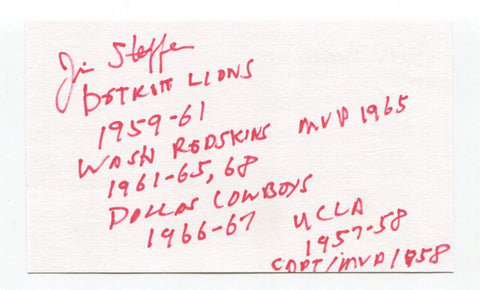 Jim Steffen
DETROIT LIONS
1959-61
WASH REDSKINS MVP 1965
1961-65, 68
DALLAS COWBOYS
1966-67 UCLA
1957-58
CAPT/MVP 1958